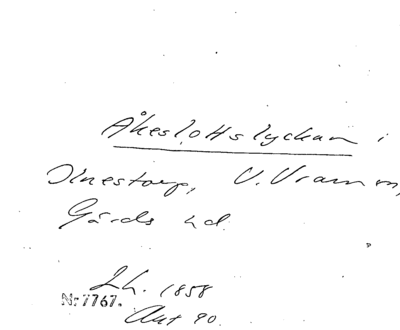 Åkeslottslyckan i
Olnestorp, V. Vram sn,
Gärds hd.
Lh. 1858
Nr 7767.
Aut 90.